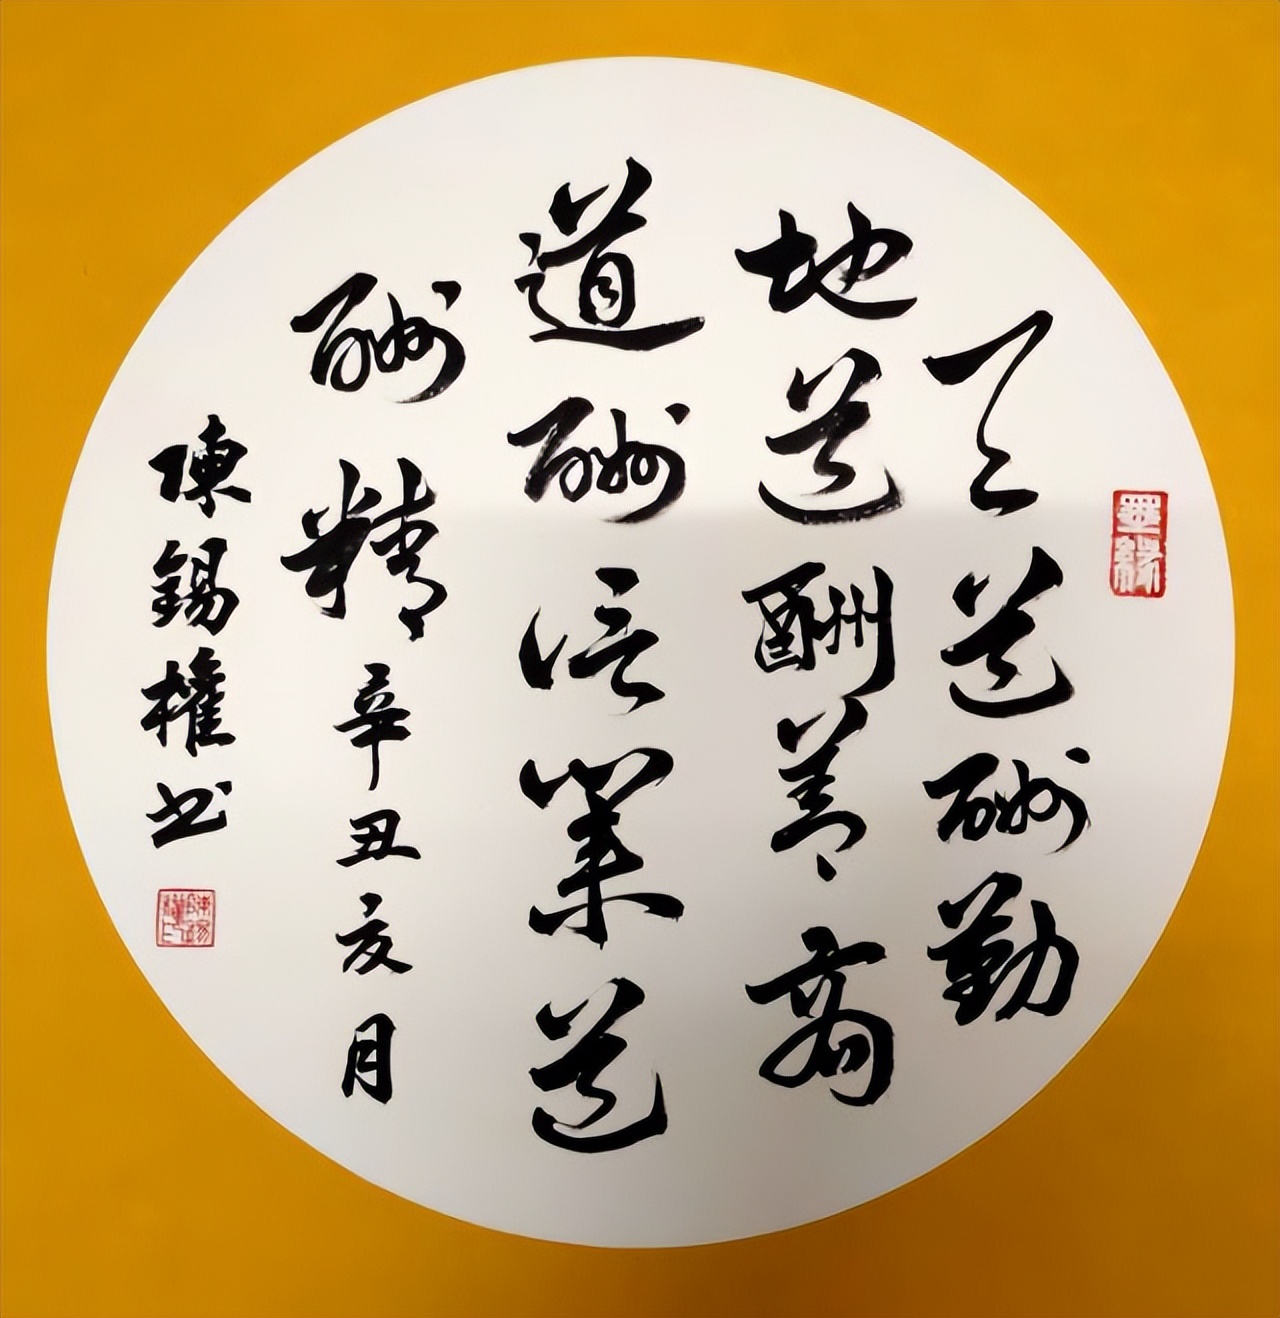 天道酬勤
地道酬善商
道酬信業道
酬精辛丑亥月
陳錫權书
墨緣